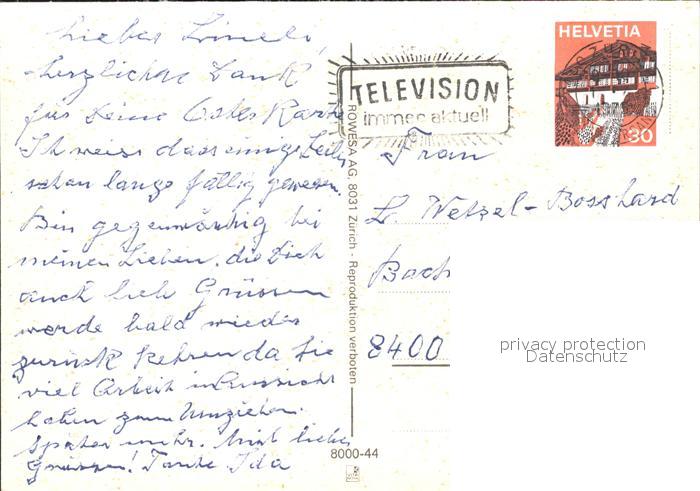 Liebes Lineli,
herzlichen Dank
für Deine Osterkarte
Ich weiss dass einige Zeilen
schon lange fällig gewesen.
Bin gegenwärtig bei
meinen Lieben, die Dich
auch lieb Grüssen
werde bald wieder
zurück kehren da Sie
viel Arbeit in Aussicht
haben zum Umziehen.
Später mehr. Mit lieben
Grüssen! Tante Ida
ROWESA AG, 8031 Zürich - Reproduktion verboten
8000-44
TELEVISION
immer aktuell
HELVETIA
30
Frau
L. Wetzel-Bosshard
Bach
8400
privacy protection
Datenschutz